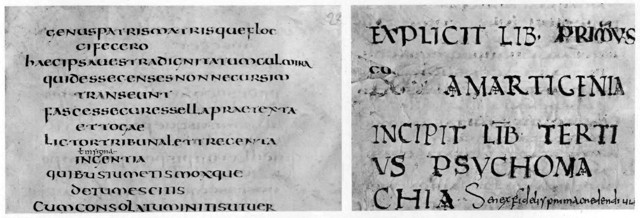 GENUSPATRISMATRISQUEFLOC
CIFECERO
HAECIPSAUESTRADIGNITATUMCULMINA
QUIDESSECENSESNONNECURSIM
TRANSEUNT
FASCESSECURESSELLAPRAETEXTA
ETTOGAE
LICTORTRIBUNALETTRECENTA
INCENTIA
QUIBUSTUMETISMOXQUE
DETUMESCITIS
CUMCONSOLATUMINITISUTUER
EXPLICIT LIB· PRIMUS
AMARTIGENIA
INCIPIT LIB TERTI
US PSYCHOMA
CHIA Senex fidelis prima credendi ui